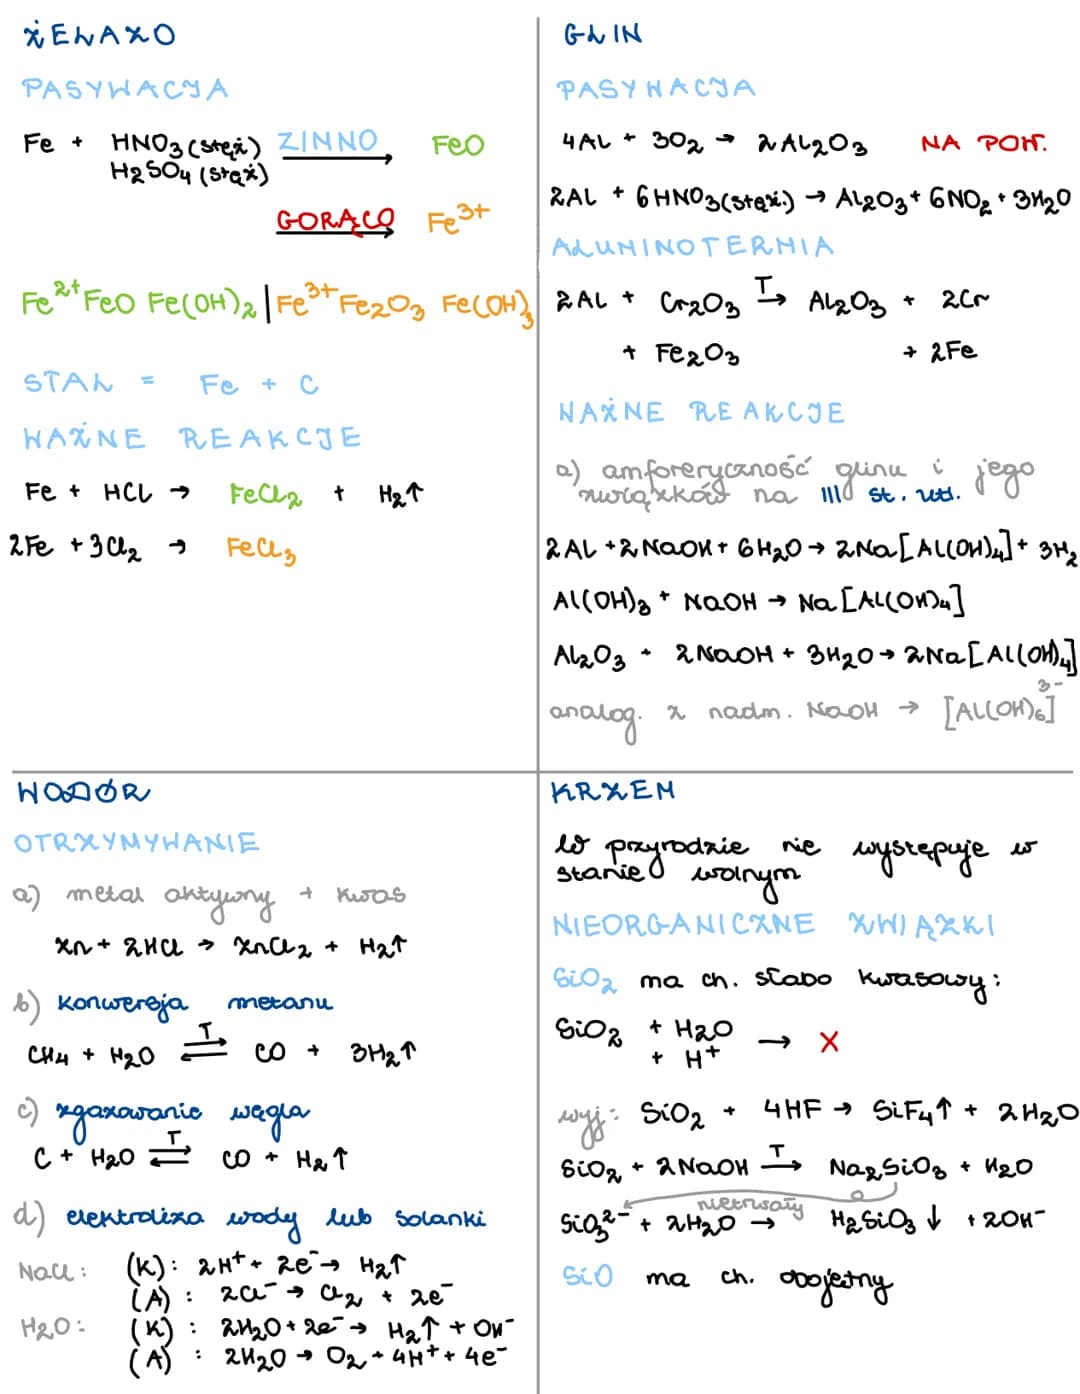 ŻELAZO
PASYWACJA
Fe + HNO3 (stęż) ZIMNO → FeO
H2SO4 (stęż)
GORĄCO → Fe³⁺
Fe²⁺ FeO Fe(OH)2 | Fe³⁺ Fe2O3 Fe(OH)3
STAL = Fe + C
WAŻNE REAKCJE
Fe + HCl → FeCl2 + H2↑
2Fe + 3Cl2 → FeCl3
GLIN
PASYWACJA
4Al + 3O2 → 2Al2O3 NA POW.
2Al + 6HNO3(stęż.) → Al2O3 + 6NO2 + 3H2O
ALUMINOTERMIA
2Al + Cr2O3 T→ Al2O3 + 2Cr
+ Fe2O3 + 2Fe
WAŻNE REAKCJE
a) amforeryczność glinu i jego
związków na III st. utl.
2Al + 2NaOH + 6H2O → 2Na[Al(OH)4] + 3H2
Al(OH)3 + NaOH → Na[Al(OH)4]
Al2O3 + 2NaOH + 3H2O → 2Na[Al(OH)4]
analog. z nadm. NaOH → [Al(OH)6]³⁻
WODÓR
OTRZYMYWANIE
a) metal aktywny + kwas
Zn + 2HCl → ZnCl2 + H2↑
b) konwersja metanu
CH4 + H2O T⇌ CO + 3H2↑
c) zgazowanie węgla
C + H2O T⇌ CO + H2↑
d) elektroliza wody lub solanki
NaCl: (K): 2H⁺ + 2e⁻ → H2↑
(A): 2Cl⁻ → Cl2 + 2e⁻
H2O: (K): 2H2O + 2e⁻ → H2↑ + OH⁻
(A): 2H2O → O2 + 4H⁺ + 4e⁻
KRZEM
w przyrodzie nie występuje w
stanie wolnym
NIEORGANICZNE ZWIĄZKI
SiO2 ma ch. słabo kwasowy:
SiO2 + H2O → X
+ H⁺
wyj: SiO2 + 4HF → SiF4↑ + 2H2O
SiO2 + 2NaOH T→ Na2SiO3 + H2O
nietrwały
SiO3²⁻ + 2H2O → H2SiO3↓ + 2OH⁻
SiO ma ch. obojętny